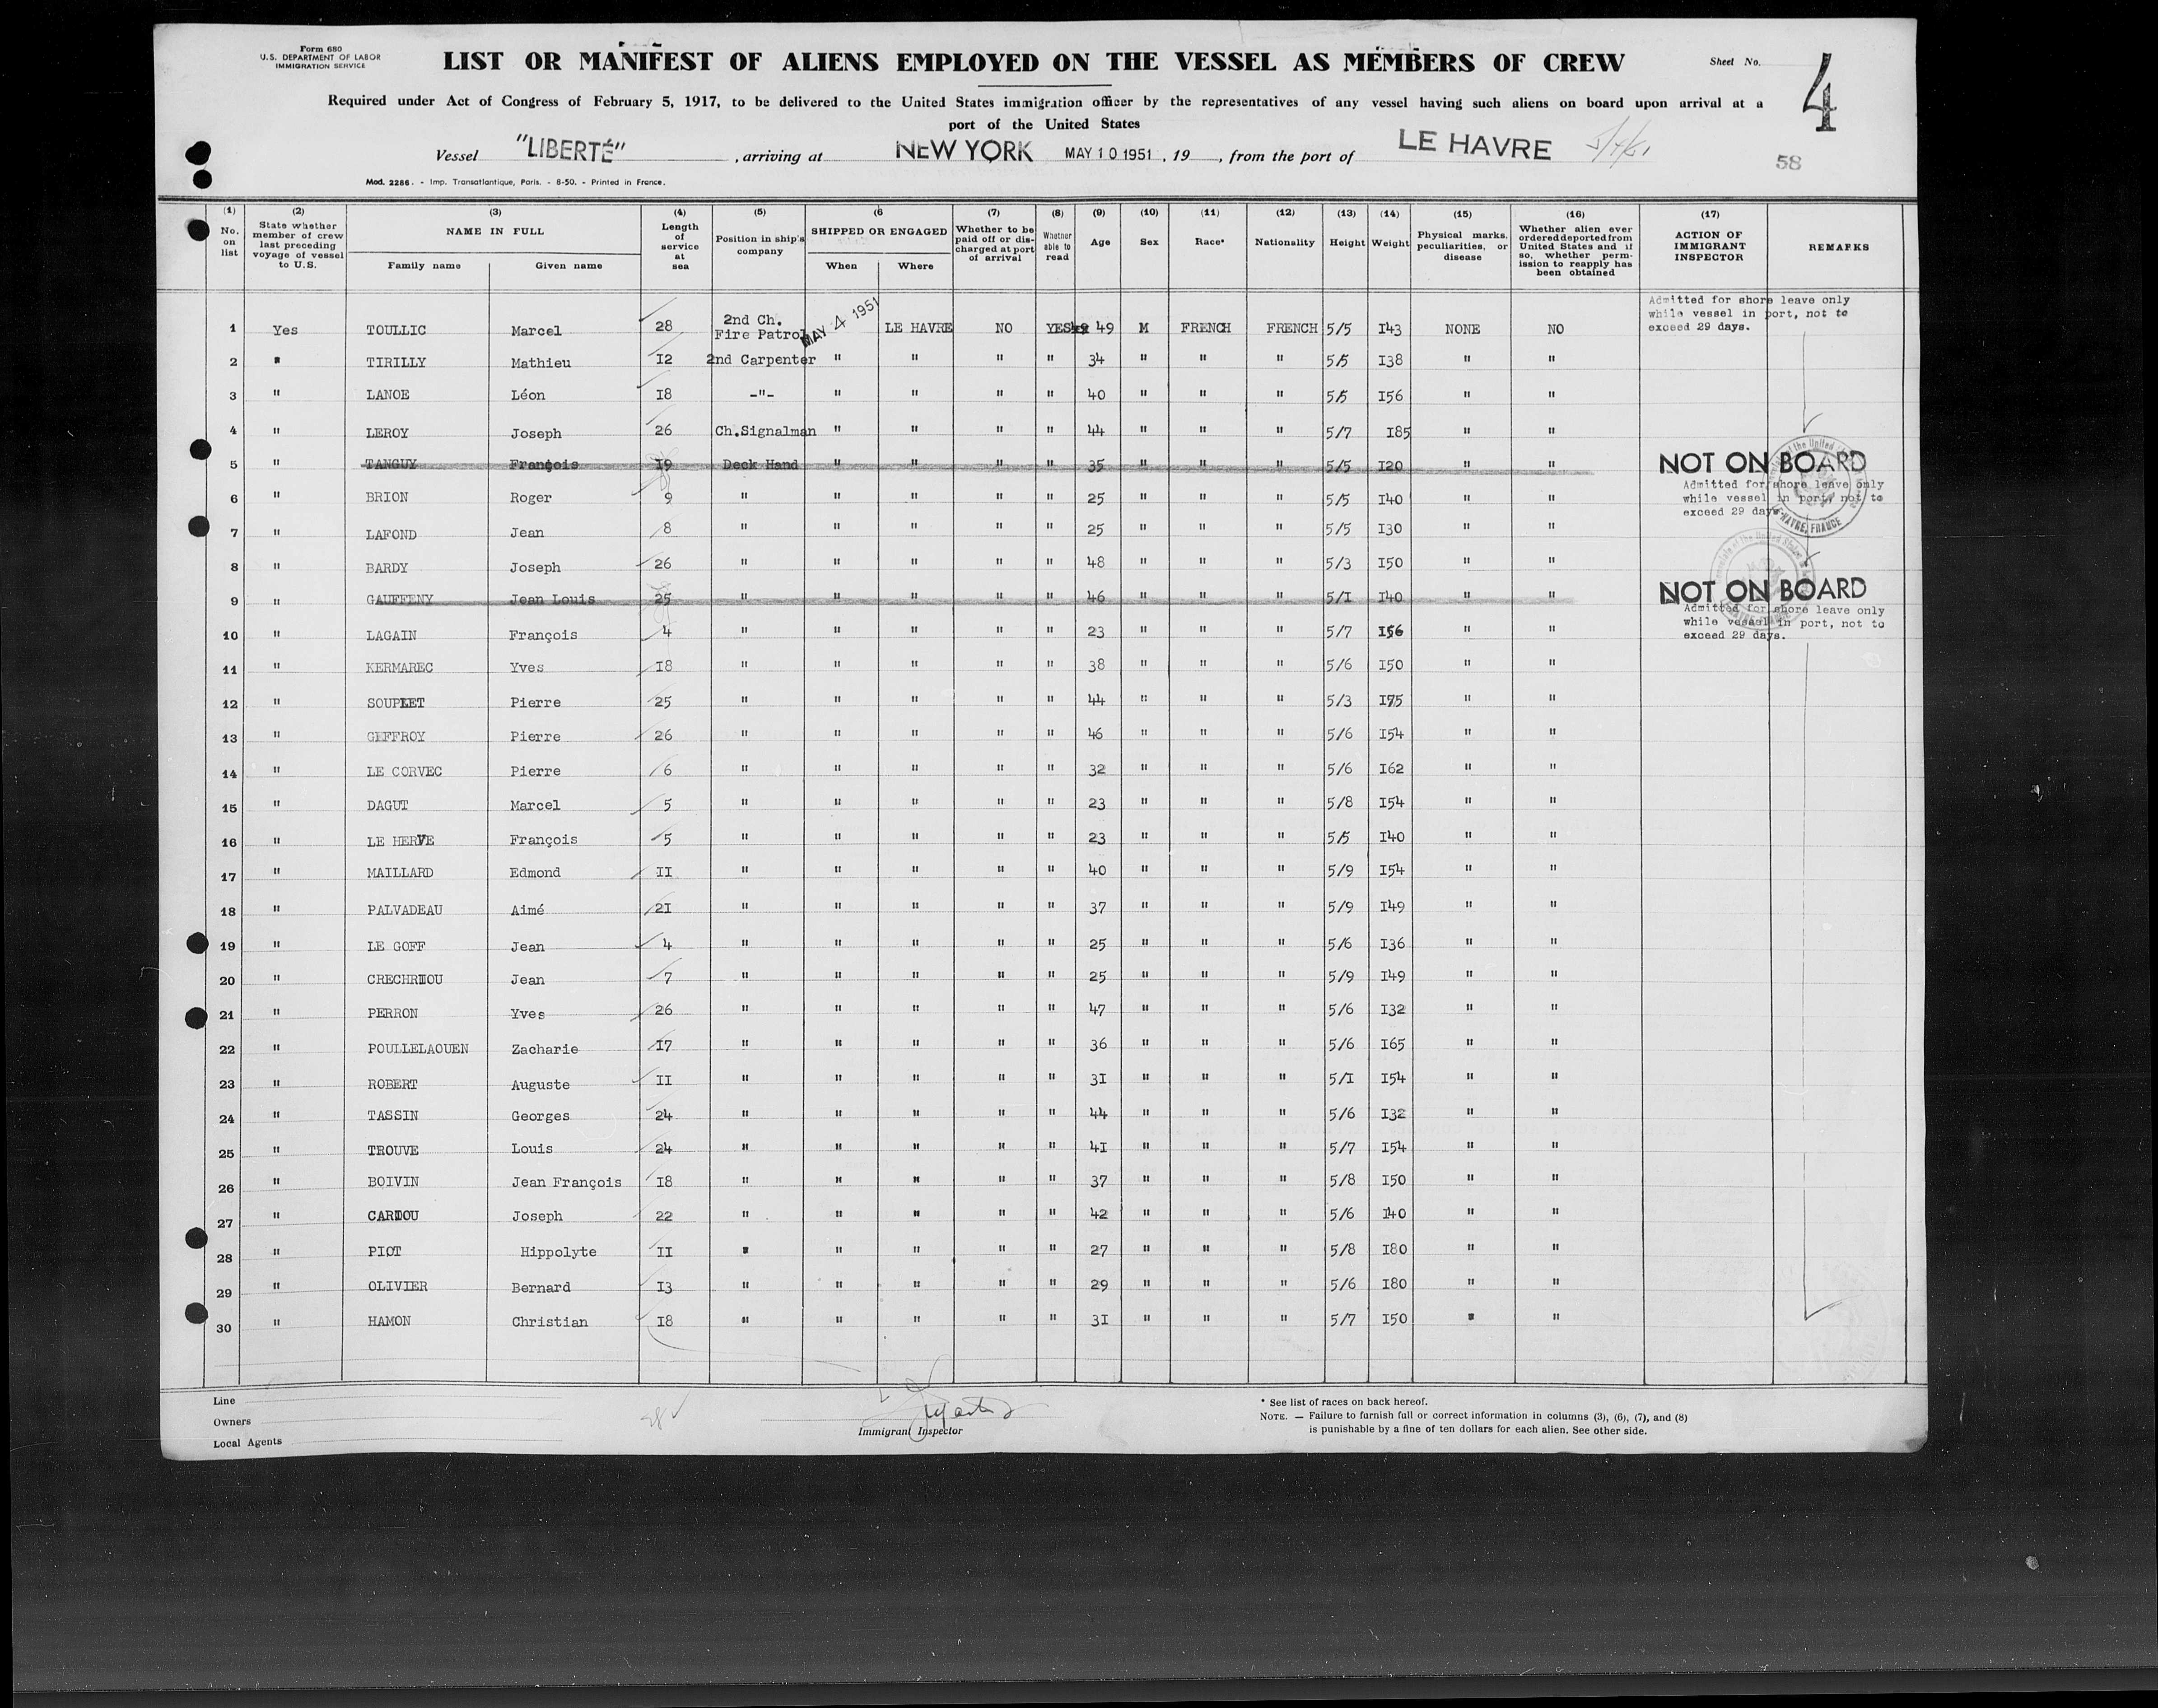 Form 680
U.S. DEPARTMENT OF LABOR
IMMIGRATION SERVICE
LIST OR MANIFEST OF ALIENS EMPLOYED ON THE VESSEL AS MEMBERS OF CREW
Sheet No. 4
Required under Act of Congress of February 5, 1917, to be delivered to the United States immigration officer by the representatives of any vessel having such aliens on board upon arrival at a
port of the United States
Vessel "LIBERTÉ", arriving at NEW YORK MAY 10 1951, 19 , from the port of LE HAVRE 5/4/51
58
Mod. 2286. - Imp. Transatlantique, Paris. - 8-50. - Printed in France.
(1) (2) (3) (4) (5) (6 (7) (8) (9) (10) (11) (12) (13) (14) (15) (16) (17)
No. on list
State whether member of crew last preceding voyage of vessel to U.S.
NAME IN FULL
Family name
Given name
Length of service at sea
Position in ship's company
SHIPPED OR ENGAGED
When
Where
Whether to be paid off or discharged at port of arrival
Whether able to read
Age
Sex
Race*
Nationality
Height
Weight
Physical marks, peculiarities, or disease
Whether alien ever ordered deported from United States and if so, whether permission to reapply has been obtained
ACTION OF IMMIGRANT INSPECTOR
REMARKS
Admitted for shore leave only
while vessel in port, not to
exceed 29 days.
1 Yes TOULLIC Marcel 28 2nd Ch. Fire Patrol MAY 4 1951 LE HAVRE NO YES 49 M FRENCH FRENCH 5/5 143 NONE NO
2 " TIRILLY Mathieu 12 2nd Carpenter " " " " 34 " " " 5/5 138 " "
3 " LANOE Léon 18 -"- " " " " 40 " " " 5/5 156 " "
4 " LEROY Joseph 26 Ch.Signalman " " " " 44 " " " 5/7 185 " "
5 " TANGUY François 19 Deck Hand " " " " 35 " " " 5/5 120 " " NOT ON BOARD
Admitted for shore leave only
while vessel in port, not to
exceed 29 days.
6 " BRION Roger 9 " " " " " 25 " " " 5/5 140 " "
7 " LAFOND Jean 8 " " " " " 25 " " " 5/5 130 " "
8 " BARDY Joseph 26 " " " " " 48 " " " 5/3 150 " "
9 " GAUFFENY Jean Louis 25 " " " " " 46 " " " 5/1 140 " " NOT ON BOARD
Admitted for shore leave only
while vessel in port, not to
exceed 29 days.
10 " LAGAIN François 4 " " " " " 23 " " " 5/7 156 " "
11 " KERMAREC Yves 18 " " " " " 38 " " " 5/6 150 " "
12 " SOUPLET Pierre 25 " " " " " 44 " " " 5/3 175 " "
13 " GEFFROY Pierre 26 " " " " " 46 " " " 5/6 154 " "
14 " LE CORVEC Pierre 6 " " " " " 32 " " " 5/6 162 " "
15 " DAGUT Marcel 5 " " " " " 23 " " " 5/8 154 " "
16 " LE HERVE François 5 " " " " " 23 " " " 5/5 140 " "
17 " MAILLARD Edmond 11 " " " " " 40 " " " 5/9 154 " "
18 " PALVADEAU Aimé 21 " " " " " 37 " " " 5/9 149 " "
19 " LE GOFF Jean 4 " " " " " 25 " " " 5/6 136 " "
20 " CRECHRIOU Jean 7 " " " " " 25 " " " 5/9 149 " "
21 " PERRON Yves 26 " " " " " 47 " " " 5/6 132 " "
22 " POULLELAOUEN Zacharie 17 " " " " " 36 " " " 5/6 165 " "
23 " ROBERT Auguste 11 " " " " " 31 " " " 5/1 154 " "
24 " TASSIN Georges 24 " " " " " 44 " " " 5/6 132 " "
25 " TROUVE Louis 24 " " " " " 41 " " " 5/7 154 " "
26 " BOIVIN Jean François 18 " " " " " 37 " " " 5/8 150 " "
27 " CARIOU Joseph 22 " " " " " 42 " " " 5/6 140 " "
28 " PIOT Hippolyte 11 " " " " " 27 " " " 5/8 180 " "
29 " OLIVIER Bernard 13 " " " " " 29 " " " 5/6 180 " "
30 " HAMON Christian 18 " " " " " 31 " " " 5/7 150 " "
Line
Owners
Local Agents
28
Immigrant Inspector
* See list of races on back hereof.
NOTE. — Failure to furnish full or correct information in columns (3), (6), (7), and (8)
is punishable by a fine of ten dollars for each alien. See other side.